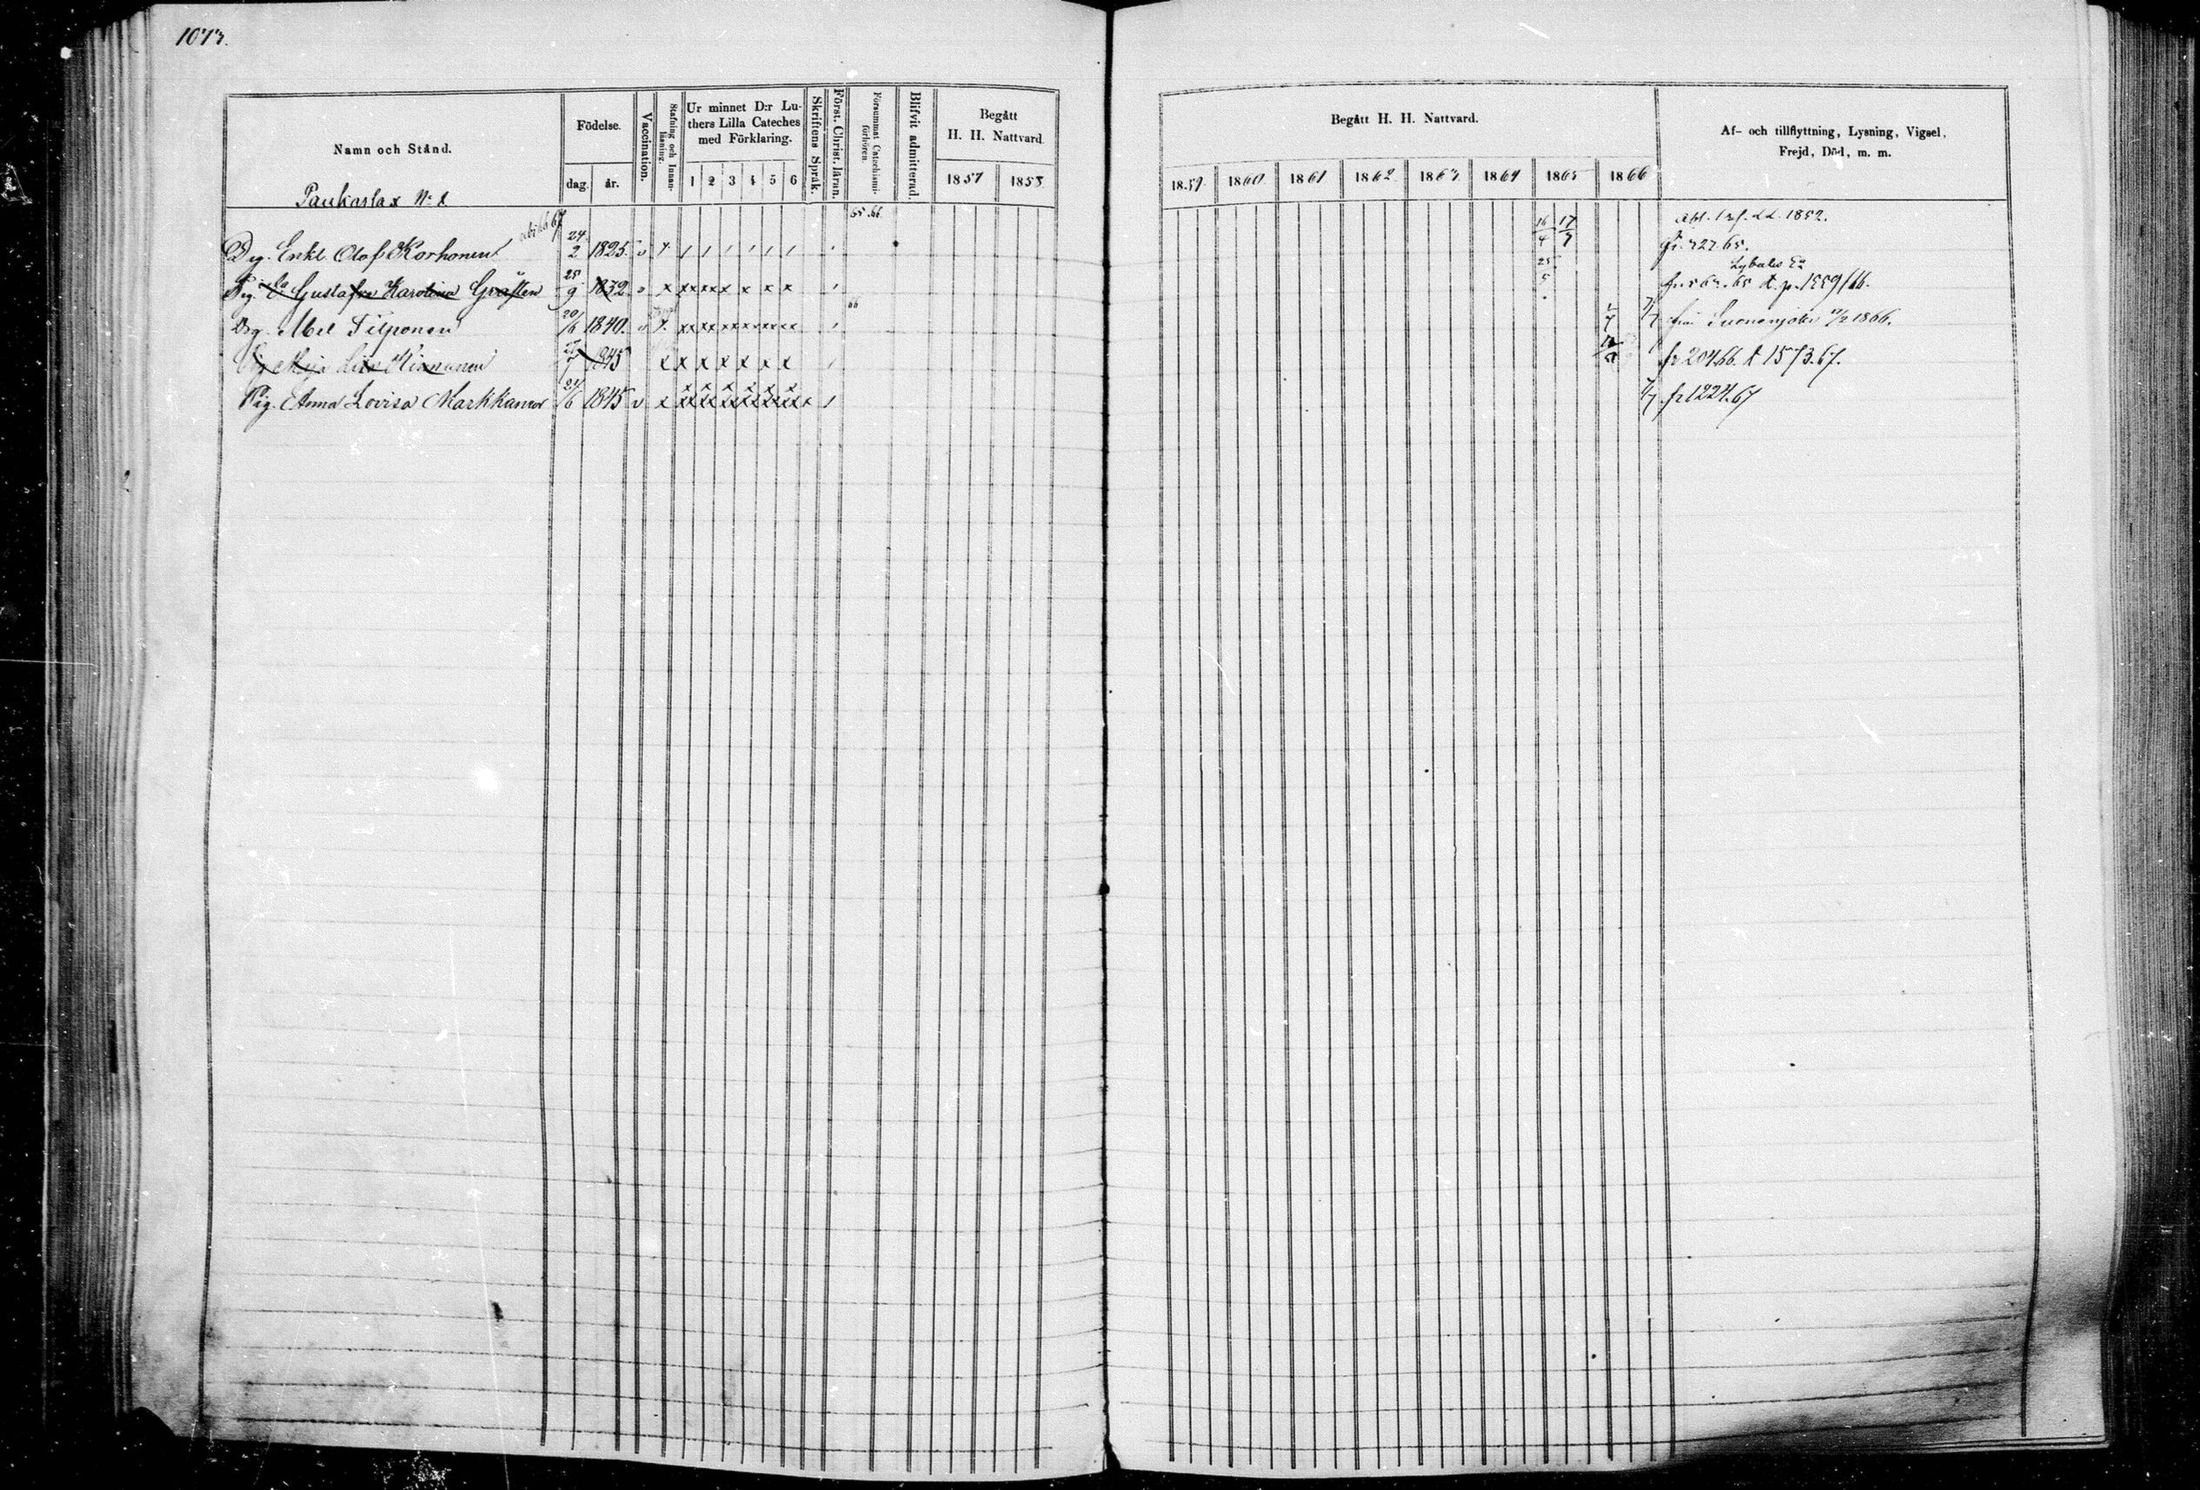 1073.
Namn och Stånd.
Födelse.
dag.
år.
Vaccination.
Stafning och Innan-
läsning.
Ur minnet D:r Lu-
thers Lilla Cateches
med Förklaring.
1 2 3 4 5 6
Skriftens Språk.
Först. Christ. läran.
Försummat Catechismi-
förhören.
Blifvit admitterad.
Begått
H. H. Nattvard.
1857 1858
Paukarlax N:o 2
Drg. Enkl. Olof Korhonen 24 2 1825
Pig. Gustafva Karolina Gråsten 25 9 1832
Drg. Abel Tilponen 20/6 1840.
1845
Pig. Anna Lovisa Markkanen 24/6 1845
65.66
66
Begått H. H. Nattvard.
1859 1860 1861 1862 1863 1864 1865 1866
Af- och tillflyttning, Lysning, Vigsel,
Frejd, Död, m. m.
16/4 17/9
25/5
1852.
fr. 727.65.
fr. 567.65 t. p. 1559/66.
från Suonenjoki 1866.
fr 204.66. t 1573.67.
7/7 fr 1224.67